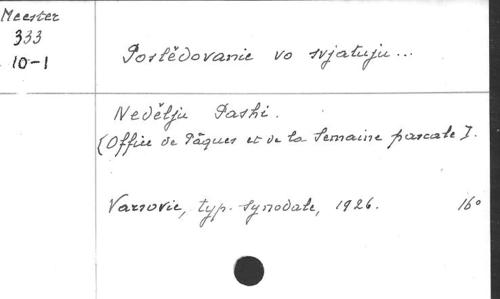 Meester
333
10-1
Poslědovanie vo svjatuju...
Nedělju Pashi.
[Office de Pâques et de la Semaine pascale].
Varsovie, typ. synodale, 1926. 16°